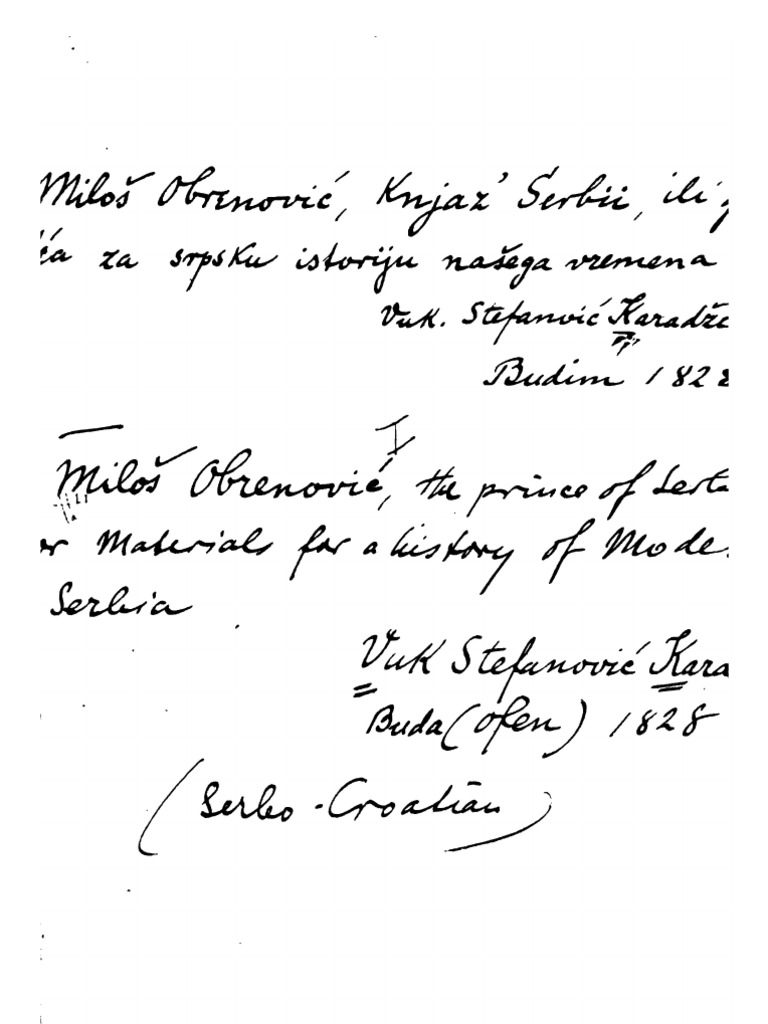 Miloš Obrenović, Knjaz' Serbii, ili
ća za srpsku istoriju našega vremena
Vuk. Stefanović Karadži
Budim 1828
I
Miloš Obrenović, the prince of
or Materials for a history of Mode
Serbia
Vuk Stefanović Kara
Buda (Ofen) 1828
(Serbo-Croatian)